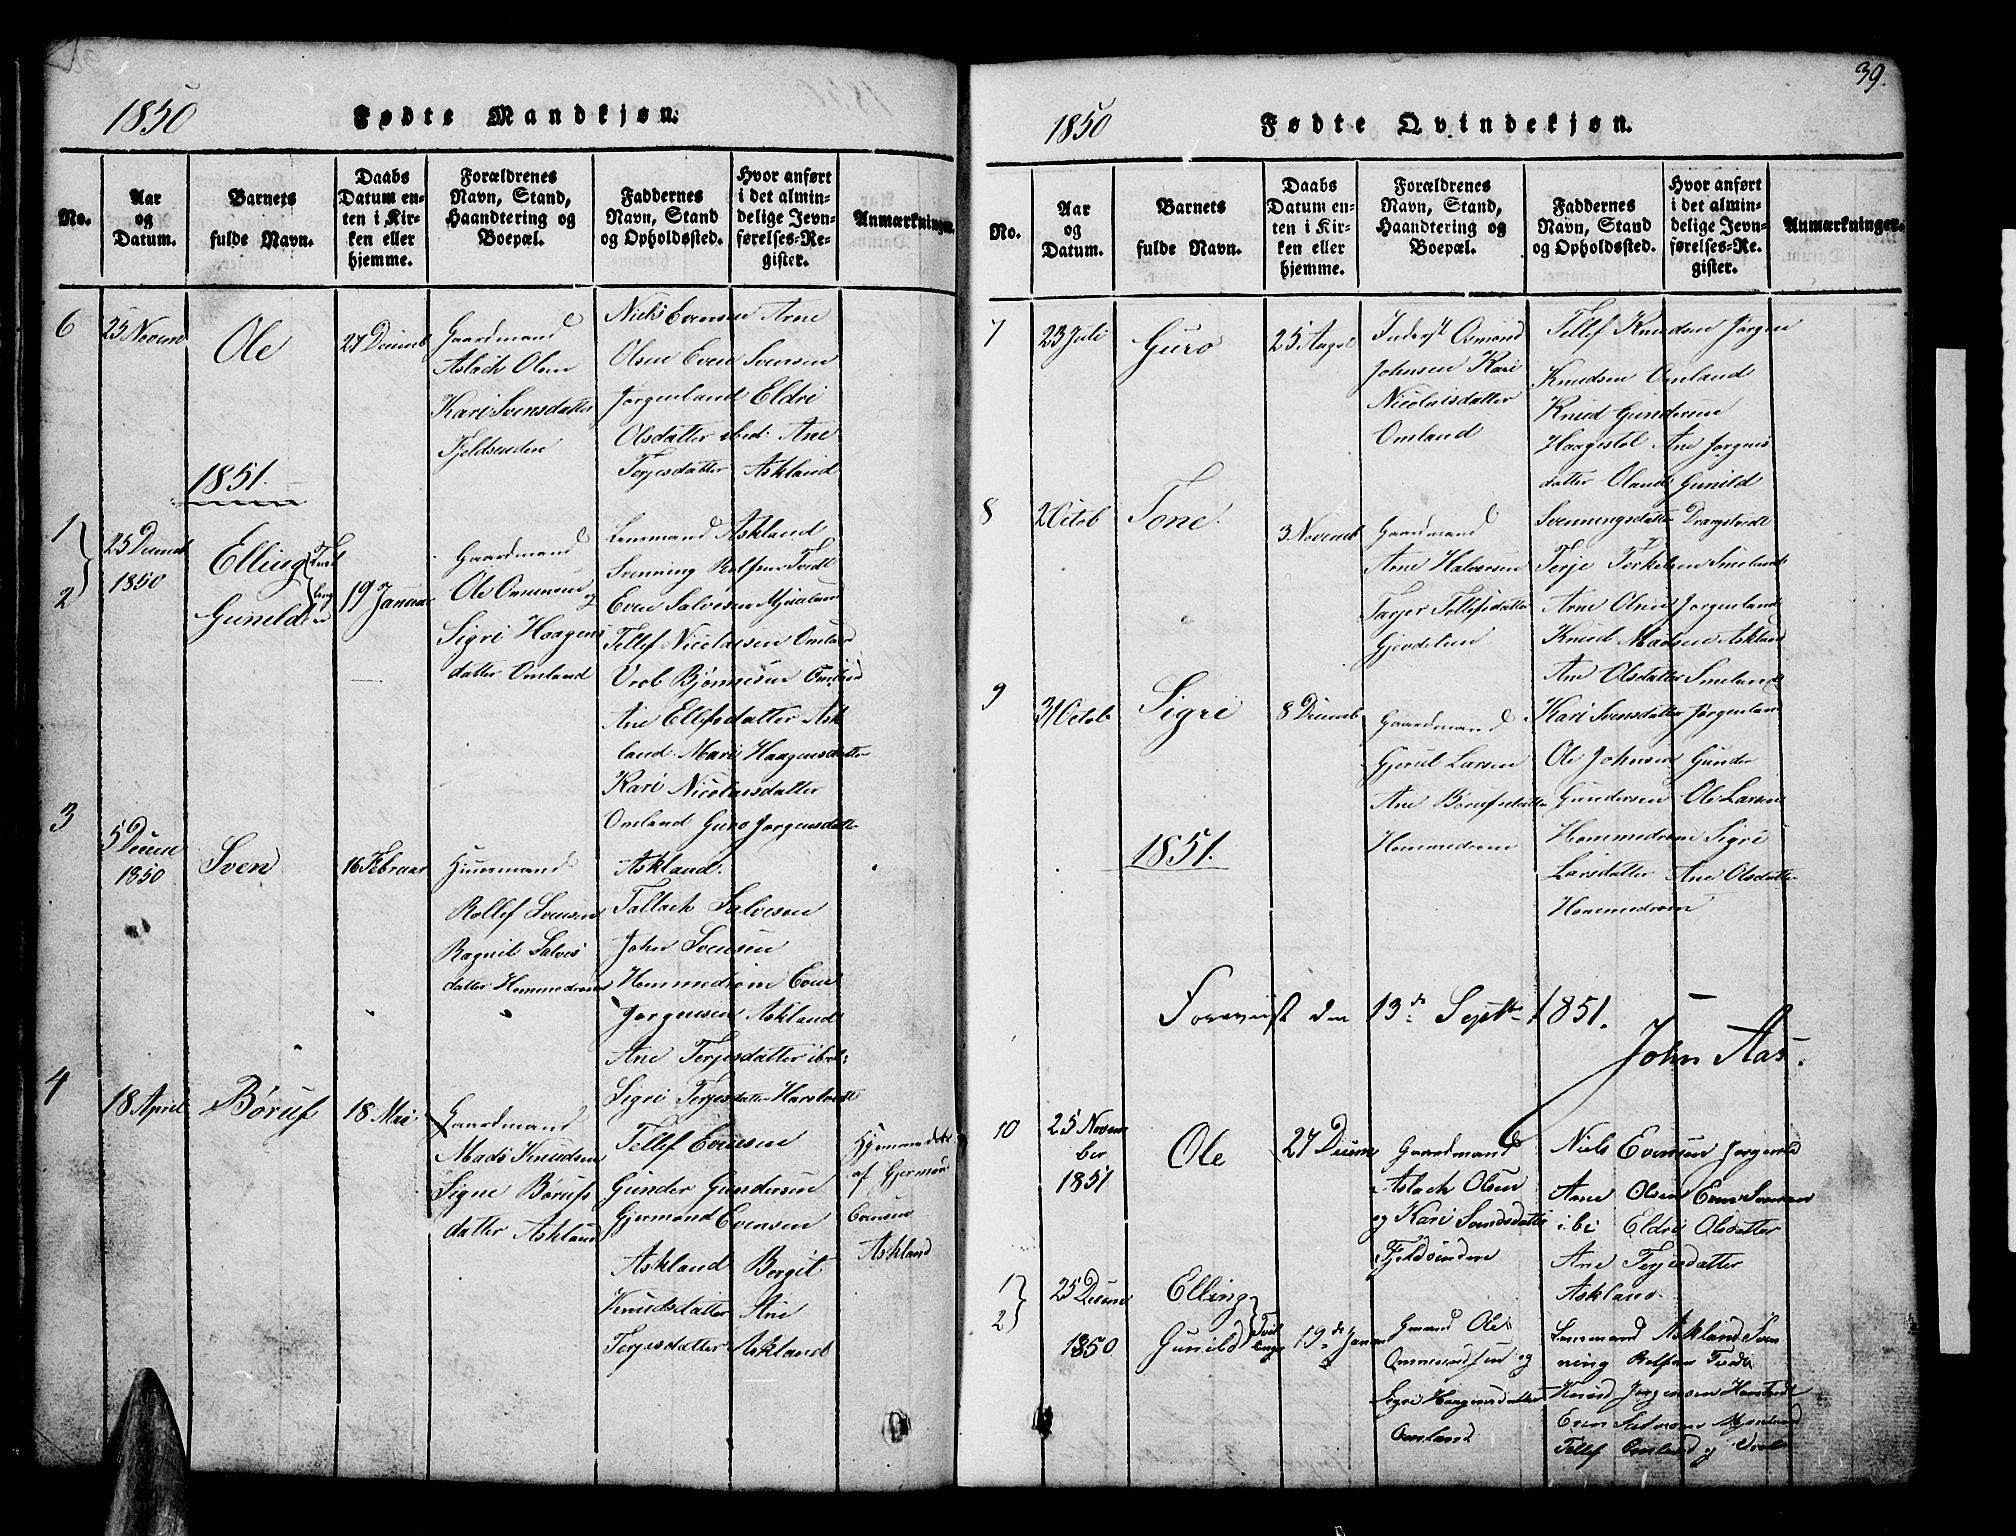 1850 Fødte Mandkjøn.
No.
Aar
og
Datum.
Barnets
fulde Navn.
Daabs
Datum en-
ten i Kir-
ken eller
hjemme.
Forældrenes
Navn, Stand,
Haandtering og
Boepæl.
Faddernes
Navn, Stand
og Opholdssted.
Hvor anført
i det almin-
delige Jevn-
førelses-Re-
gister.
Anmærkninger.
6
25 Novem
Ole
27 Decemb
Gaardmand
Aslach Olsen
Kari Svensdatter
Niels Evensen Arne
Olsen Even Svensen
Jorgenland Eldri
Olsdatter ibed: Ane
Terjesdatter Askland
1851.
1
2
25 Decemb
1850
Elling
Gunild
19 Januar
Gaardmand
Ole Ommunsen og
Sigri Haagens
datter Omland
Lensmand Askland
Svenning Rolfsen Tvedt
Even Salvesen Mjaaland
Tellef Nicolaisen Omland
Vrol Bjørnesen Omland
Ane Ellefsdatter Ask
land Mari Haagensdatter
Kari Nicolaisdatter
Omland Guro Jorgensdatter
Askland.
3
5 Decem
1850
Sven
16 Februar
Huusmand
Rollef Svensen
Ragnil Salves
datter Hommedrom
Tallach Salvesen
John Svensen
Hommedrom Even
Jorgensen Askland
Ane Terjesdatter ibd:
Sigri Terjesdatter Harstvedt
4
18 April
Børuf
18 Mai
Gaardmand
Mads Knudsen
Signe Børufs
datter Askland
Tellef Evensen
Gunder Gundersen
Gjermond Evensen
Askland Borgit
Knudsdatter Ane
Terjesdatter Askland
Hjemmedøbt
af Gjermon
Evensen
Askland
39.
1850 Fødte Qvindekjøn.
No.
Aar
og
Datum.
Barnets
fulde Navn.
Daabs
Datum en-
ten i Kir-
ken eller
hjemme.
Forældrenes
Navn, Stand,
Haandtering og
Boepæl.
Faddernes
Navn, Stand
og Opholdssted.
Hvor anført
i det almin-
delige Jevn-
førelses-Re-
gister.
Anmærkninger.
7
23 Juli
Guro
25 Augst
Inderst Osmond
Johnsen Kari
Nicolaisdatter
Omland
Tellef Knudsen Jorgen
Knudsen Omland
Knud Gundersen
Haagestol Ane Jorgens
datter Oland Gunild
8
2 Octob
Tone.
3 Novemb
Gaardmand
Arne Halvorsen
Tarjer Tellefsdatter
Svenningsdatter Drangstvedt
Terje Terkelsen Smeland
Arne Olsen Jorgenland
Knud Madsen Askland
Ane Olsdatter Smeland
9
31 Octob
Sigri
8 Decemb
Gaardmand
Gjerul Larsen
Ane Børufsdatter
Hommedrom
Kari Svensdatter Jorgenland
Ole Johnsen Gunder
Gundersen Ole Larsen
Hommedrom Sigri
Larsdatter Ane Olsdatter
Hommedrom
1851.
Foreviist den 13de Septbr 1851.
John Aas.
10
25 Novem
ber
1851
Ole
27 Decem
Gaardmand
Aslach Olsen
og Kari Svendsdatter
Niels Evensen Jorgenld
Arne Olsen Even Svensen
ibi Eldri Olsdatter
Ane Terjesdatter
Askland.
1
2
25 Decem
1850
Elling
Gunild
Tvil
linge
19de Januar
Gmand Ole
Ommundsen og
Sigri Haagensdatter
Omland
Lensmand Askland Sven
ning Rolfsen Tvedt
Knud Jorgensen Harstvedt
Even Salvesen Mjaaland
Tellef Omland og Vrol